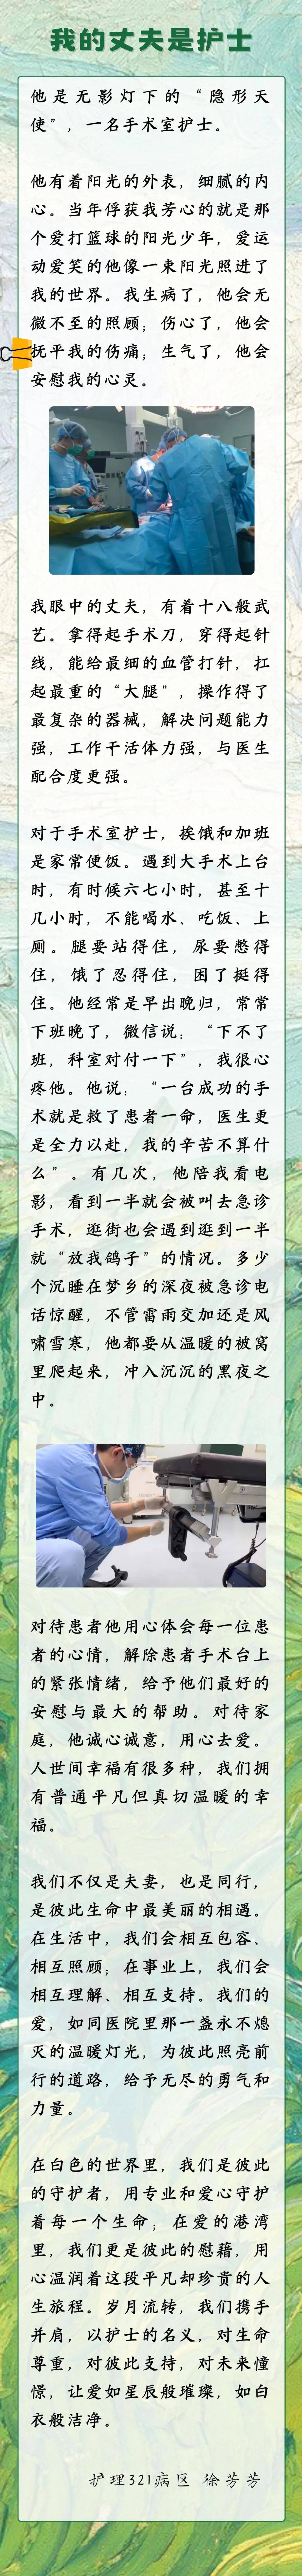 我的丈夫是护士
他是无影灯下的“隐形天
使”，一名手术室护士。
他有着阳光的外表，细腻的内
心。当年俘获我芳心的就是那
个爱打篮球的阳光少年，爱运
动爱笑的他像一束阳光照进了
我的世界。我生病了，他会无
微不至的照顾；伤心了，他会
抚平我的伤痛；生气了，他会
安慰我的心灵。
我眼中的丈夫，有着十八般武
艺。拿得起手术刀，穿得起针
线，能给最细的血管打针，扛
起最重的“大腿”，操作得了
最复杂的器械，解决问题能力
强，工作干活体力强，与医生
配合度更强。
对于手术室护士，挨饿和加班
是家常便饭。遇到大手术上台
时，有时候六七小时，甚至十
几小时，不能喝水、吃饭、上
厕。腿要站得住，尿要憋得
住，饿了忍得住，困了挺得
住。他经常是早出晚归，常常
下班晚了，微信说：“下不了
班，科室对付一下”，我很心
疼他。他说：“一台成功的手
术就是救了患者一命，医生更
是全力以赴，我的辛苦不算什
么”。有几次，他陪我看电
影，看到一半就会被叫去急诊
手术，逛街也会遇到逛到一半
就“放我鸽子”的情况。多少
个沉睡在梦乡的深夜被急诊电
话惊醒，不管雷雨交加还是风
啸雪寒，他都要从温暖的被窝
里爬起来，冲入沉沉的黑夜之
中。
对待患者他用心体会每一位患
者的心情，解除患者手术台上
的紧张情绪，给予他们最好的
安慰与最大的帮助。对待家
庭，他诚心诚意，用心去爱。
人世间幸福有很多种，我们拥
有普通平凡但真切温暖的幸
福。
我们不仅是夫妻，也是同行，
是彼此生命中最美丽的相遇。
在生活中，我们会相互包容、
相互照顾；在事业上，我们会
相互理解、相互支持。我们的
爱，如同医院里那一盏永不熄
灭的温暖灯光，为彼此照亮前
行的道路，给予无尽的勇气和
力量。
在白色的世界里，我们是彼此
的守护者，用专业和爱心守护
着每一个生命；在爱的港湾
里，我们更是彼此的慰藉，用
心温润着这段平凡却珍贵的人
生旅程。岁月流转，我们携手
并肩，以护士的名义，对生命
尊重，对彼此支持，对未来憧
憬，让爱如星辰般璀璨，如白
衣般洁净。
护理321病区 徐芳芳